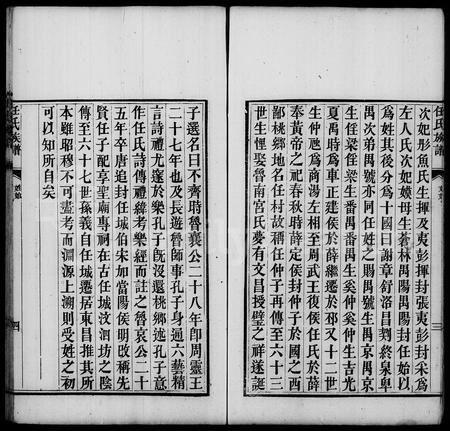 任氏族譜
次妃彤魚氏生揮及夷彭揮封張夷彭封采爲
左人氏次妃嫫母生蒼林禺陽禺陽封任始以
爲姓其後分爲十國曰謝章舒洛昌契終泉卑
禺次弟禺號亦同任姓之賜禺號生禺京禺京
生倕梁倕梁生番禺番禺生奚仲奚仲生吉光
夏禹時爲車正建侯於薛繼遷於邳又十二世
生仲虺爲商湯左相至周武王復侯任氏於薛
俾奉黃帝之祀春秋時薛定侯封仲子於國之西
鄙桃鄉地名任村故稱任仲子再傳至六十三
世生悝娶魯南宮氏夢有文昌授璧之祥遂誕
三
子選名曰不齊時魯襄公二十八年卽周靈王
二十七年也及長遊魯師事孔子身通六藝精
言詩禮尤邃於樂孔子旣沒還桃鄉述孔子意
作任氏詩傳禮緯考樂經而註之魯哀公二十
五年卒唐追封任城伯宋加當陽侯明改稱先
賢任子配享聖廟專祠在任城汶泗坊之陰
傳至六十七世孫義自任城遷居東昌推其所
本雖昭穆不可盡考而淵源上溯則受姓之初
可以知所自矣
任氏族譜
姓始
四